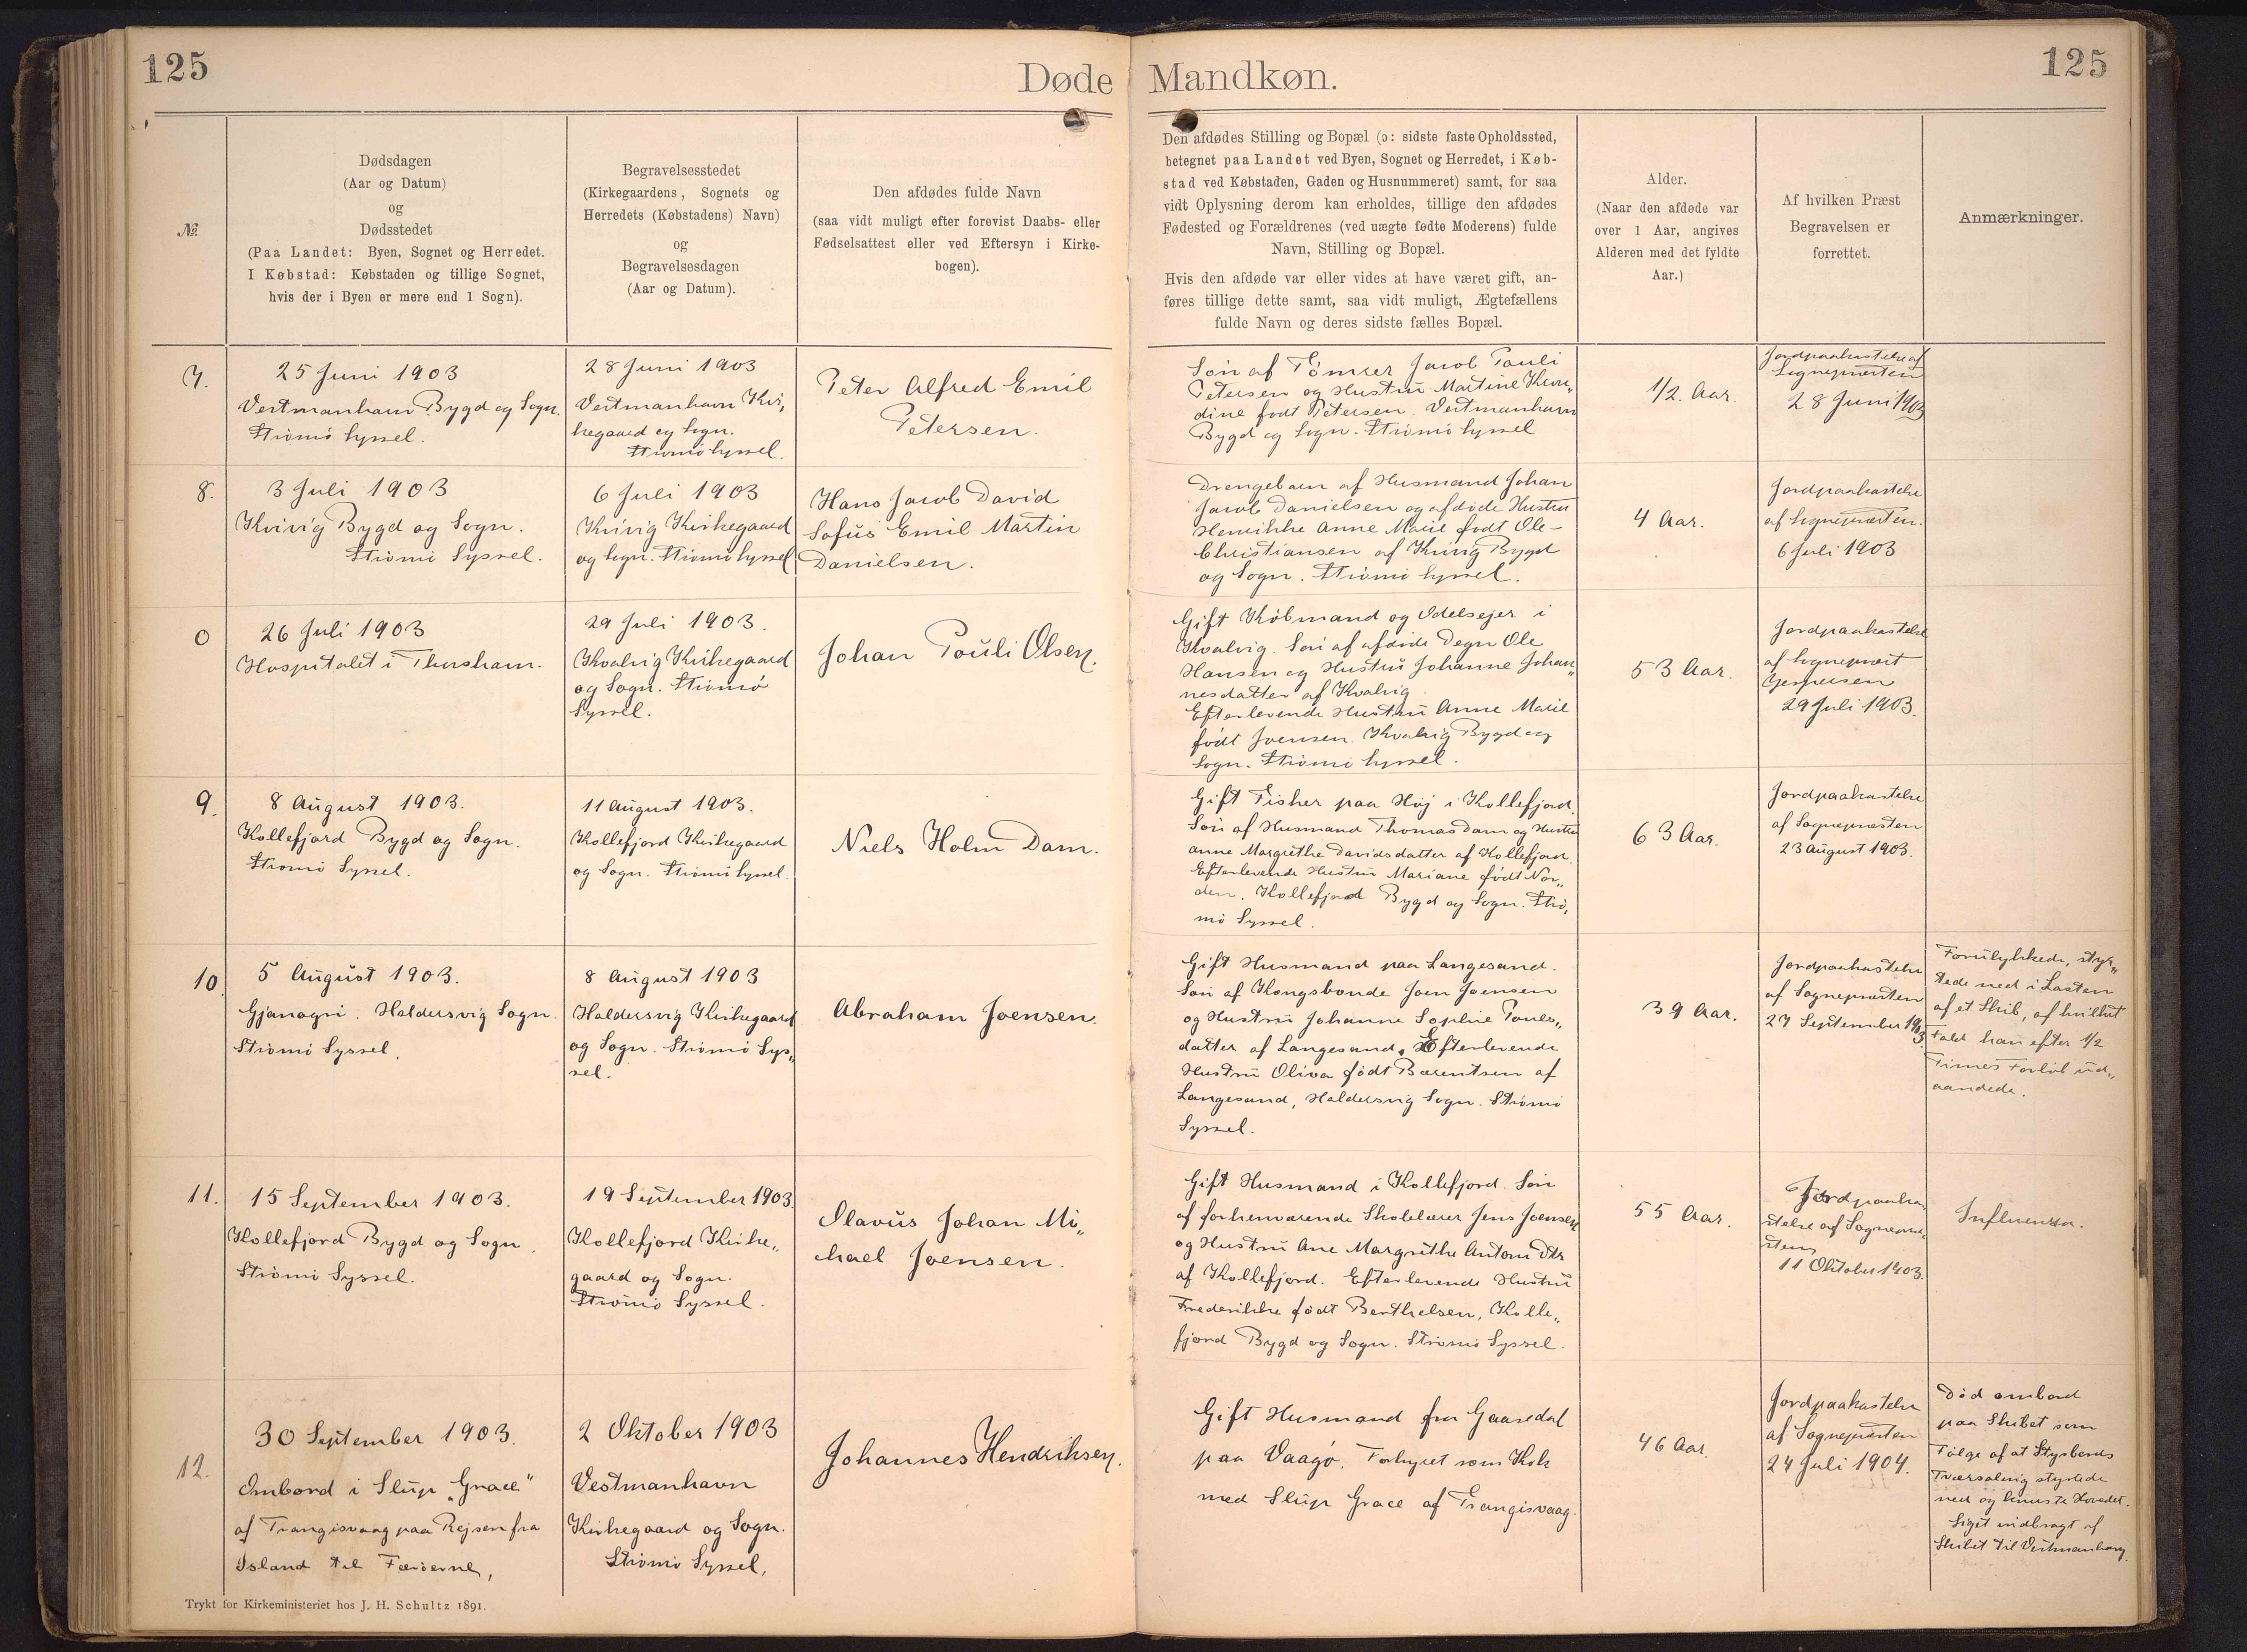 125
Døde
Mandkøn.
125
№.
Dødsdagen
(Aar og Datum)
og
Dødsstedet
(Paa Landet: Byen, Sognet og Herredet.
I Købstad: Købstaden og tillige Sognet,
hvis der i Byen er mere end 1 Sogn).
Begravelsesstedet
(Kirkegaardens, Sognets og
Herredets (Købstadens) Navn)
og
Begravelsesdagen
(Aar og Datum).
Den afdødes fulde Navn
(saa vidt muligt efter forevist Daabs- eller
Fødselsattest eller ved Eftersyn i Kirke-
bogen).
Den afdødes Stilling og Bopæl (ɔ: sidste faste Opholdssted,
betegnet paa Landet ved Byen, Sognet og Herredet, i Køb-
stad ved Købstaden, Gaden og Husnummeret) samt, for saa
vidt Oplysning derom kan erholdes, tillige den afdødes
Fødested og Forældrenes (ved uægte fødte Moderens) fulde
Navn, Stilling og Bopæl.
Hvis den afdøde var eller vides at have været gift, an-
føres tillige dette samt, saa vidt muligt, Ægtefællens
fulde Navn og deres sidste fælles Bopæl.
Alder.
(Naar den afdøde var
over 1 Aar, angives
Alderen med det fyldte
Aar.)
Af hvilken Præst
Begravelsen er
forrettet.
Anmærkninger.
7.
25 Juni 1903
Vestmanhavn Bygd og Sogn.
Strömö Syssel.
28 Juni 1903
Vestmanhavn Kir„
kegaard og Sogn.
Strömö Syssel.
Peter Alfred Emil
Petersen.
Sön af Tömrer Jacob Pauli
Petersen og Hustrü Martine
födt Petersen. Vestmanhavn
Bygd og Sogn. Strömö Syssel
1/2. Aar.
Jordpaakastelse af
Sognepræsten
28 Juni 1903
8.
3 Juli 1903
Kvivig Bygd og Sogn.
Strömö Syssel.
6 Juli 1903
Kvivig Kirkegaard
og Sogn. Strömö Syssel
Hans Jacob David
Sofus Emil Martin
Danielsen.
Drengebarn af Husmand Johan
Jacob Danielsen og afdöde Hustru
Henrikke Anne Marie födt Ole-
Christiansen af Kvivig Bygd
og Sogn. Strömö Syssel.
4 Aar.
Jordpaakastelse
af Sognepræsten.
6 Juli 1903
0
26 Juli 1903
Hospitalet i Thorshavn.
29 Juli 1903.
Kvalvig Kirkegaard
og Sogn. Strömö
Syssel.
Johan Pouli Olsen.
Gift Köbmand og Odelsejer i
Kvalvig. Sön af afdöde Degn Ole
Hansen og Hustrü Johanne Johan„
nesdatter af Kvalvig.
Efterlevende Hustrü Anne Marie
födt Joensen. Kvalvig Bygd og
Sogn. Strömö Syssel.
53 Aar.
Jordpaakastelse
af Sognepræst
Jespersen
29 Juli 1903.
9.
8 August 1903.
Kollefjord Bygd og Sogn.
Strömö Syssel.
11 August 1903.
Kollefjord Kirkegaard
og Sogn. Strömö Syssel.
Niels Holm Dam.
Gift Fisker paa Höj i Kollefjord.
Sön af Husmand Thomas Dam og Hustru
Anne Margrethe Davidsdatter af Kollefjord.
Efterlevende Hustrü Mariane födt Nor„
den. Kollefjord Bygd og Sogn. Strö„
mö Syssel.
63 Aar.
Jordpaakastelse
af Sognepræsten
23 August 1903.
10.
5 August 1903.
Gjanogri. Haldersvig Sogn.
Strömö Syssel.
8 August 1903
Haldersvig Kirkegaard
og Sogn. Strömö Sys„
sel.
Abraham Joensen.
Gift Husmand paa Langesand.
Sön af Kongsbonde Joen Joensen
og Hustrü Johanne Sophie Poüls„
datter af Langesand. Efterlevende
Hustrü Oliva födt Bærentsen af
Langesand, Haldersvig Sogn. Strömö
Syssel.
39 Aar.
Jordpaakastelse
af Sognepræsten
27 September 1903.
Forulykkede, styr„
tede ned i Lasten
af et Skib, af hvilket
Fald han efter 1/2
Times Forlöb ud„
aandede.
11.
15 September 1903.
Kollefjord Bygd og Sogn.
Strömö Syssel.
19 September 1903.
Kollefjord Kirke„
gaard og Sogn.
Strömö Syssel.
Olavus Johan Mi„
chael Joensen.
Gift Husmand i Kollefjord. Sön
af forhenværende Skolelærer Jens Joensen
og Hustrü Ane Margrethe Antoni Dtr
af Kollefjord. Efterlevende Hustrü
Frederikke födt Berthelsen, Kolle„
fjord Bygd og Sogn. Strömö Syssel.
55 Aar.
Jordpaaka„
stelse af Sognepræ„
sten
11 Oktober 1903.
Influenza.
12.
30 September 1903.
Ombord i Slüp „Grace"
af Trangisvaag paa Rejsen fra
Island til Færöerne,
2 Oktober 1903
Vestmanhavn
Kirkegaard og Sogn.
Strömö Syssel.
Johannes Hendriksen.
Gift Husmand fra Gaasedal
paa Vaagö. Forhyret som Kok
med Slüp Grace af Trangisvaag.
46 Aar.
Jordpaakastelse
af Sognepræsten
24 Juli 1904.
Död ombord
paa Skibet som
Fölge af at Styrbords
styrtede
ned og knuste Hovedet.
Liget indbragt af
Skibet til Vestmanhavn.
Trykt for Kirkeministeriet hos J. H. Schultz 1891.